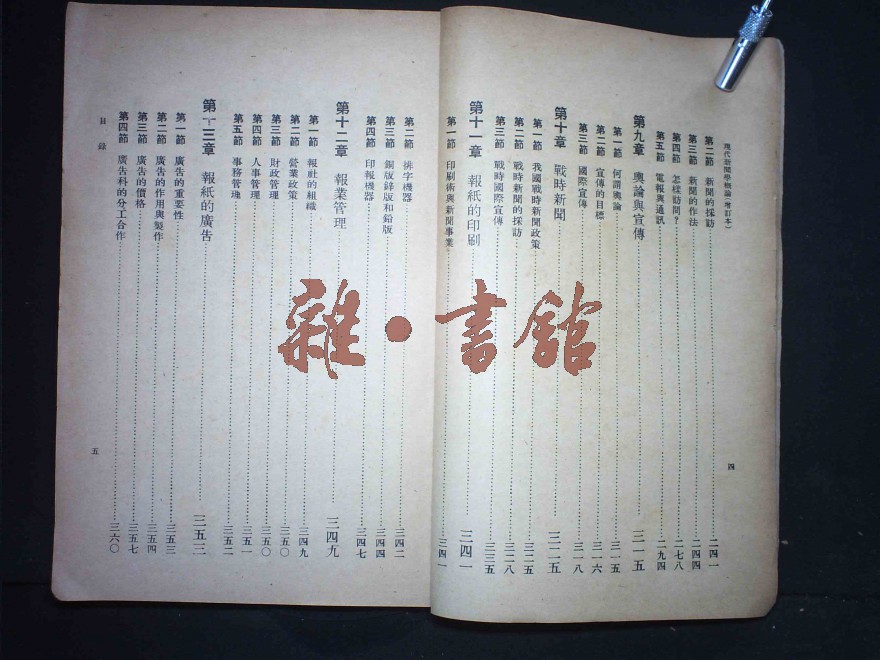 現代新聞學概論(增訂本)
四
第二節 新聞的採訪 二四一
第三節 新聞的作法 二四四
第四節 怎樣訪問? 二七八
第五節 電報與通訊 二九四
第九章 輿論與宣傳 三一五
第一節 何謂輿論 三一五
第二節 宣傳的目標 三一六
第三節 國際宣傳 三一八
第十章 戰時新聞 三二五
第一節 我國戰時新聞政策 三二五
第二節 戰時新聞的採訪 三二八
第三節 戰時國際宣傳 三三五
第十一章 報紙的印刷 三四一
第一節 印刷術與新聞事業 三四一
第二節 排字機器 三四二
第三節 銅版鋅版和鉛版 三四四
第四節 印報機器 三四七
第十二章 報業管理 三四九
第一節 報社的組織 三四九
第二節 營業政策 三五〇
第三節 財政管理 三五〇
第四節 人事管理 三五一
第五節 事務管理 三五二
第十三章 報紙的廣告 三五三
第一節 廣告的重要性 三五三
第二節 廣告的作用與製作 三五四
第三節 廣告的價格 三五七
第四節 廣告科的分工合作 三六〇
目錄
五
雜·書館